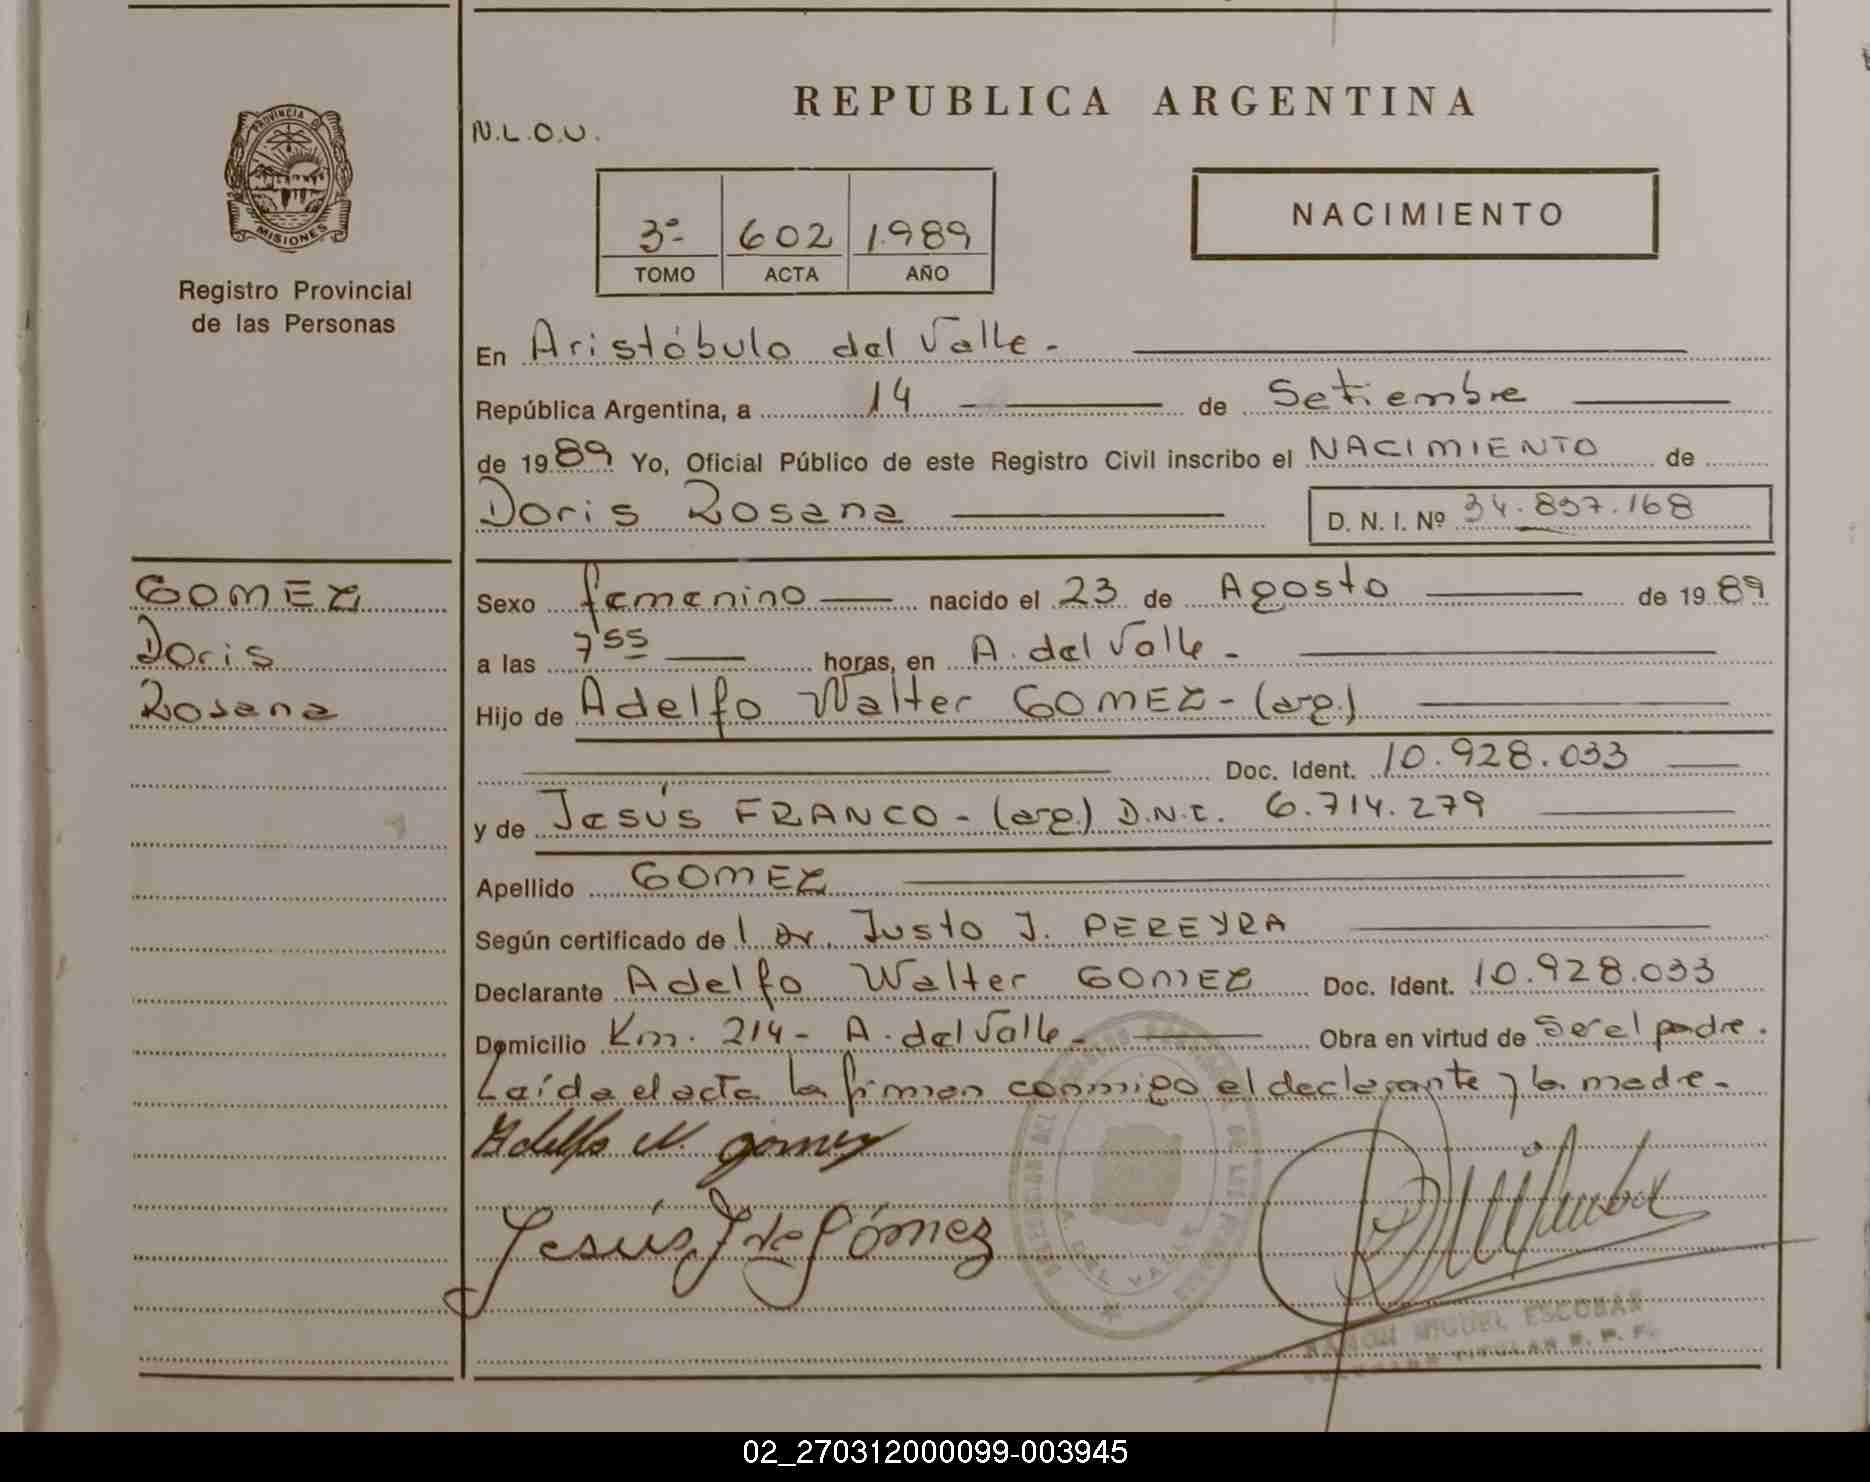 REPUBLICA ARGENTINA
N.L.O.U.
PROVINCIA DE
MISIONES
Registro Provincial
de las Personas
3º 602 1.989
TOMO ACTA AÑO
NACIMIENTO
En Aristóbulo del Valle.-
República Argentina, a 14 de Setiembre
de 1989 Yo, Oficial Público de este Registro Civil inscribo el NACIMIENTO de
Doris Rosana
D. N. I. Nº 34.837.168
GOMEZ
Doris
Rosana
Sexo femenino nacido el 23 de Agosto de 1989
a las 7 55 horas, en A. del Valle -
Hijo de Adelfo Walter GOMEZ - (arg.)
Doc. Ident. 10.928.033
y de Jesús FRANCO - (arg.) D.N.I. 6.714.279
Apellido GOMEZ
Según certificado del Dr. Justo J. PEREYRA
Declarante Adelfo Walter GOMEZ Doc. Ident. 10.928.033
Domicilio Km. 214 - A. del Valle - Obra en virtud de ser el padre.
Leída el acta la firman conmigo el declarante y la madre.
Adelfo W. Gomez
Jesús F de Gómez
RAMON MIGUEL ESCOBAR
TITULAR R. P. P.
02_270312000099-003945